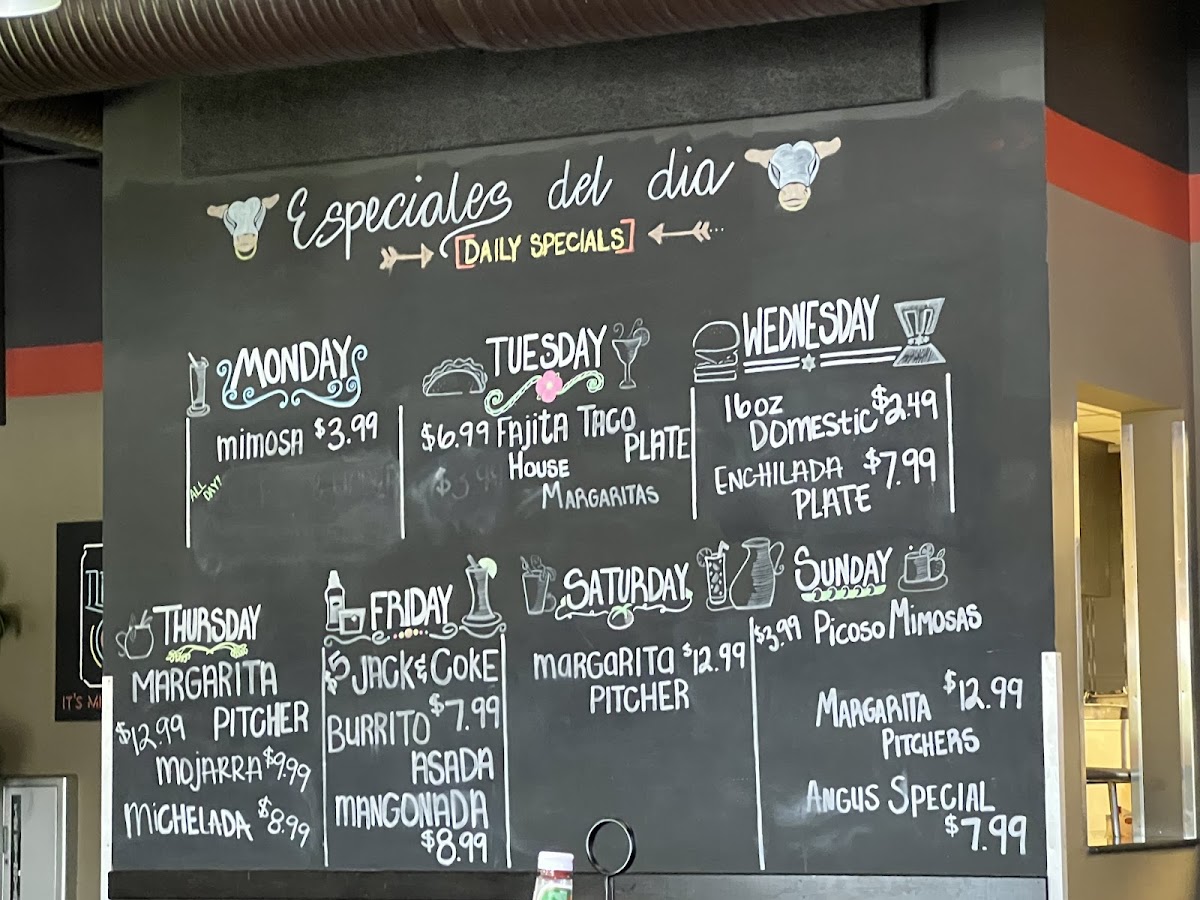 Especiales del dia
[DAILY SPECIALS]
MONDAY
mimosa $3.99
ALL DAY!
TUESDAY
$6.99 Fajita Taco
PLATE
House
Margaritas
WEDNESDAY
16oz
Domestic $2.49
Enchilada $7.99
PLATE
THURSDAY
MARGARITA
$12.99 PITCHER
MOJARRA $9.99
MICHELADA $8.99
FRIDAY
$5 JACK & COKE
BURRITO $7.99
ASADA
MANGONADA
$8.99
SATURDAY
margarita $12.99
PITCHER
SUNDAY
$3.99 Picoso Mimosas
Margarita $12.99
Pitchers
Angus Special
$7.99
IT'S